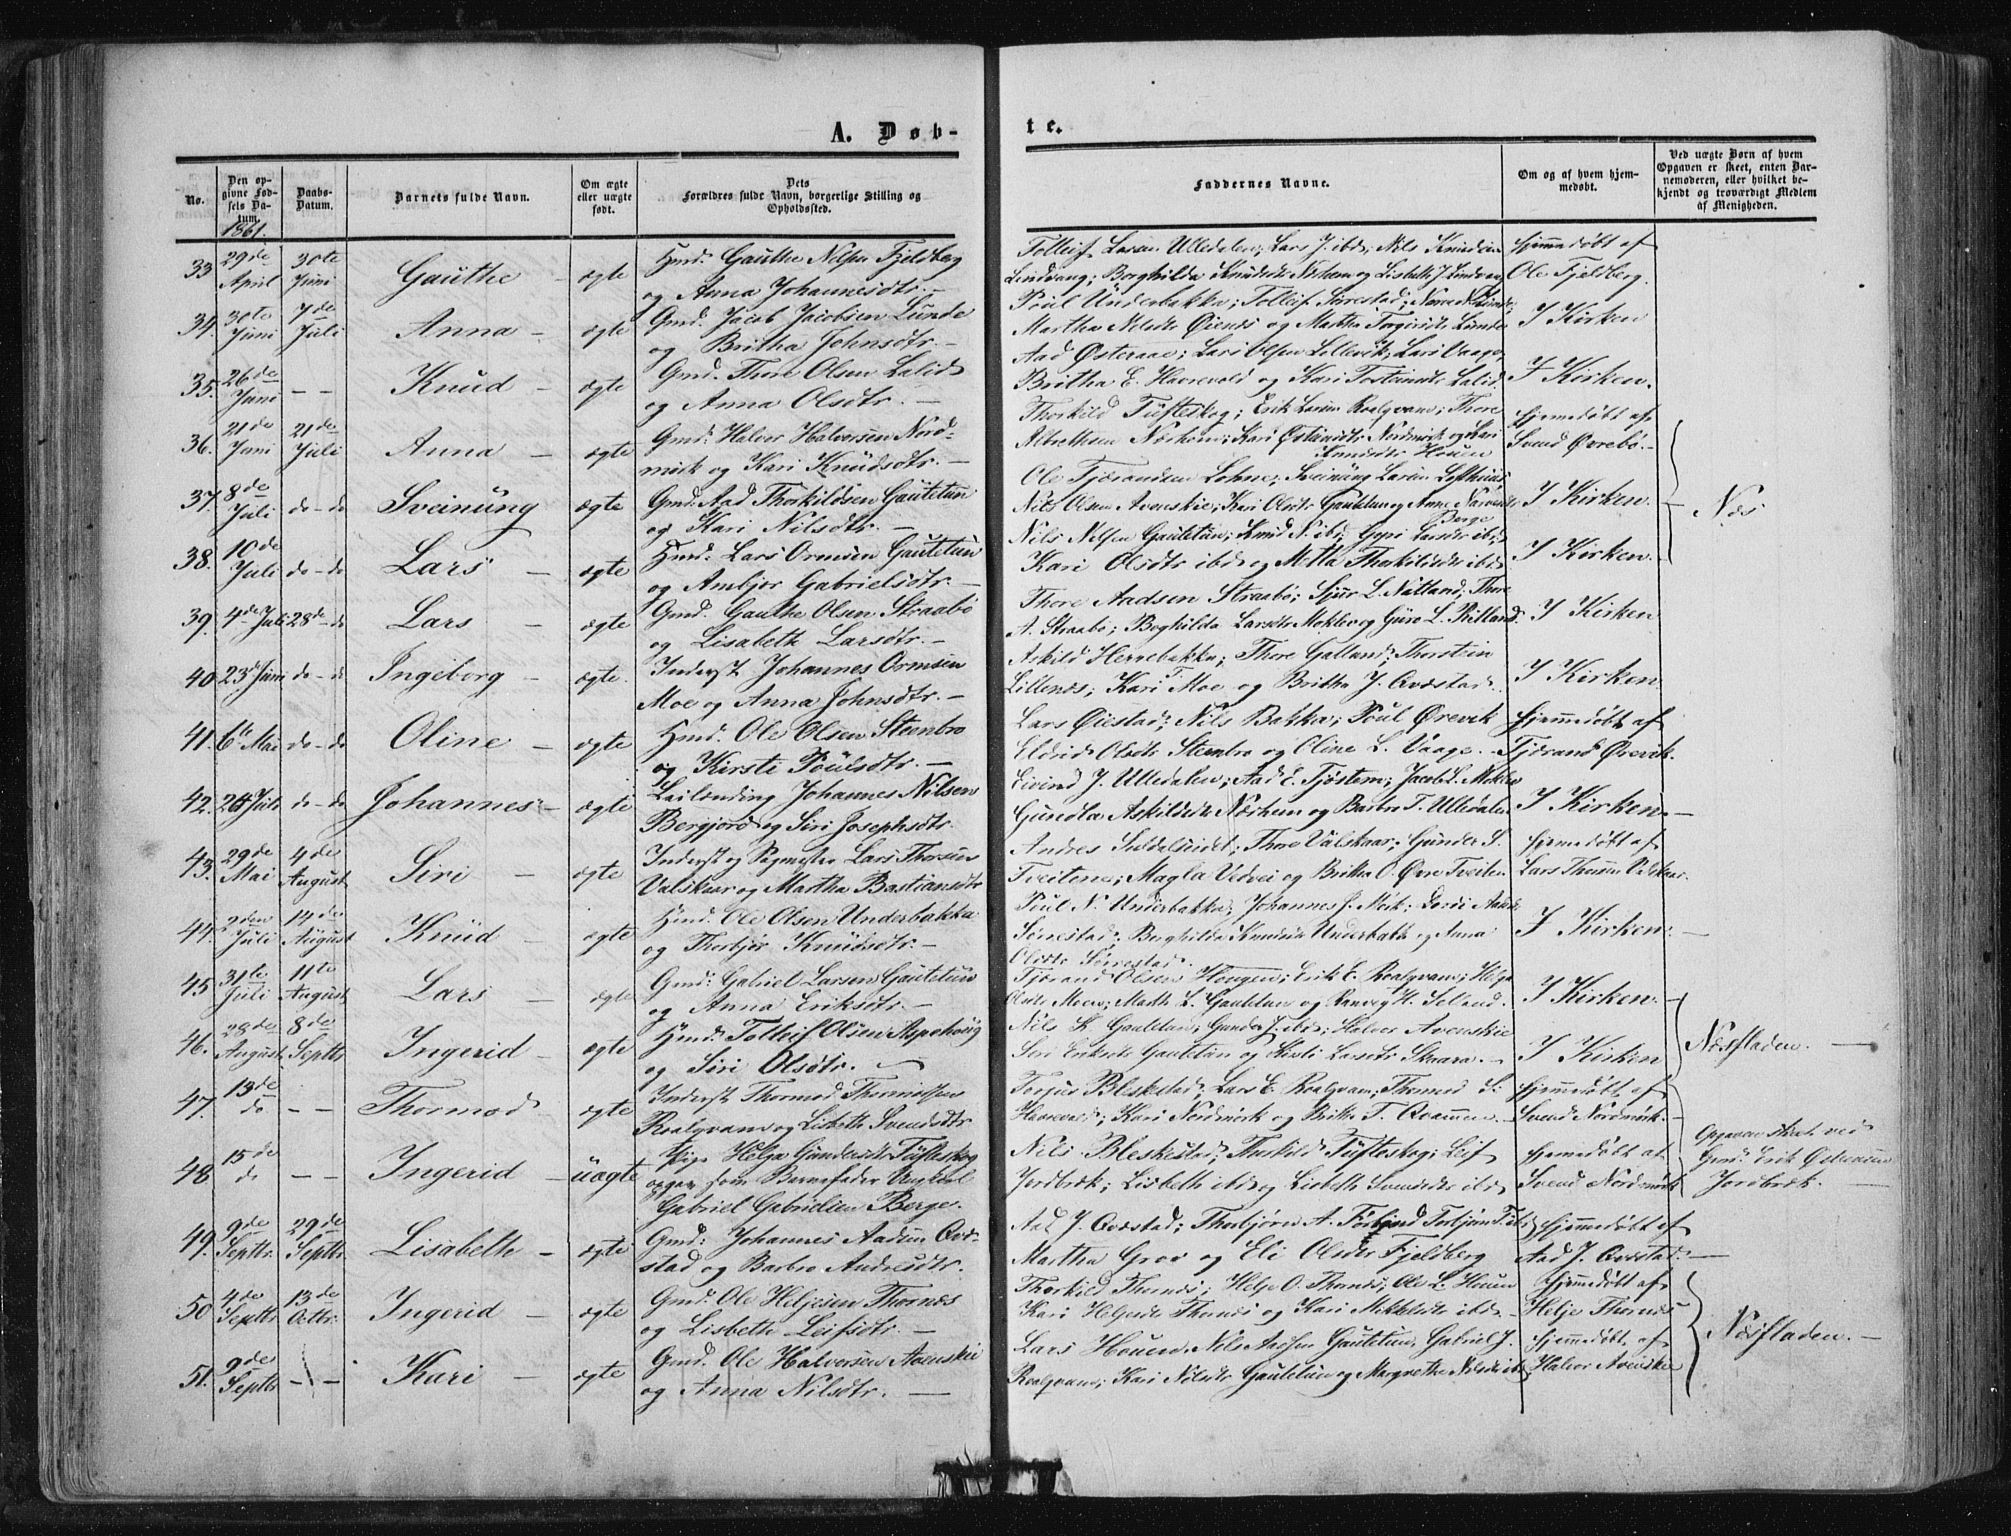 A. Døb-
te.
No.
Den op-
givne Fød-
sels Da-
tum.
Daabs-
Datum.
Barnets fulde Navn.
Om ægte
eller uægte
født.
Dets
Forældres fulde Navn, borgerlige Stilling og
Opholdssted.
Faddernes Navne.
Om og af hvem hjem-
medøbt.
Ved uægte Børn af hvem
Opgaven er skeet, enten Bar-
nemoderen, eller hvilket be-
kjendt og troværdigt Medlem
af Menigheden.
1861.
33 29de April 30te Juni Gauthe - ægte Hmd: Gauthe Nelsen Fjeldberg
og Anna Johannesdtr. -
Tolleif Larsen Ulledalen; Lars J. ibd; Nils Knudsen
Lindvang; Borghilda Knudsdtr Næshem og Lisbeth J. Lindvang
Hjemmedøbt af
Ole Fjeldberg.
34. 30te Juni 7de Juli Anna - ægte Gmd. Jacob Jacobsen Lunde
og Britha Johnsdtr. -
Poul Underbakka; Tolleif Sørestad;
Martha Nelsdtr Øienes og Martha Torgirsdtr Lunde
I Kirken
35. 26de Juni - - Knud - ægte Gmd. Thore Olsen Lalid
og Anna Olsdtr. -
Aad Østeraae; Lars Olsen Lellevik; Lars Vaage,
Britha E. Havrevold og Kari Torsteinsdtr Lalid.
I Kirken.
36. 21de Juni 21de Juli Anna - ægte Gmd: Halvor Halversen Nord-
mork og Kari Knudsdtr. -
Thorkild Tufteskog; Erik Larsen Roalqvam; Thore
Albrethsen Næshem; Kari Østensdtr Nordmork og Kari
Knudsdtr Houen
Hjemmedøbt af
Svend Øvrebø. -
37. 8de Juli do - do Sveinung ægte Gmd. Aad Thorkildsen Gautetun
og Kari Nilsdtr. -
Ole Tjerandsen Lohne; Sveinung Larsen Lofthuus
Nils Olsen Avenskie; Kari Olsdtr Gautetun og Anne
I Kirken. -
Næs
38. 10de Juli do - do Lars - ægte Hmd: Lars Ormsen Gautetun
og Ambjør Gabrielsdtr. -
Nils Nelsen Gautetun; Knud N. ibd; Gyri Larsdtr ibd;
Kari Olsdtr ibd og Metta Thorkildsdtr ibd
I Kirken. -
39. 4de Juli 28de - do Lars - ægte Gmd. Gauthe Olsen Straabø
og Lisabeth Larsdtr. -
Thore Aadsen Straabø; Sjur L. Natland; Thore
A. Straabø; Boghilda Larsdtr Mokleb og Guro L. Ritland
I Kirken
40 23d Juni do - do Ingeborg - ægte. Inderst Johannes Ormsen
Moe og Anna Johnsdtr. -
Askild Herrebakka; Thore Galland; Thorstein
Lillenes; Kari T. Moe og Britha J. Qvæstad.
I Kirken.
41. 6te Mai do - do Oline - ægte Hmd: Ole Olsen Steenbro
og Kirsti Poulsdtr. -
Lars Øiestad; Nils Bakka; Poul Ørevik
Eldrid Olsdtr Stenbro og Oline L. Vaage. -
Hjemmedøbt af
Tjerand Ørevik.
42. Juli do - do Johannes - ægte Leilænding Johannes Nilsen
Bergjord og Siri Josephsdtr.
Eivind J. Ulledalen; Aad E. Tjøstem; Jacob L. Mokleb
Gundla Askildsdtr Næshem og Barbro T. Ulledalen
I Kirken. -
43. 29de Mai 4de August Siri - ægte Inderst og Bygmester Lars Thorsen
Valskaar og Martha Bastiansdtr
Andres Suldalseidet; Thore Valskaar; Gunder S.
Tveitene; Magla Vedvei og Britha O. Øvre Tveiten
Hjemmedøbt af
Lars Thorsen Valskaar.
44. 2den Juli 14de August Knud - ægte Hmd. Ole Olsen Underbakka
og Thorbjør Knudsdtr. -
Poul N. Underbakka; Johannes J. Mork;
Sørrestad; Borghilda Knudsdtr Underbakk og Anna
Olsdtr Sørrestad.
I Kirken. -
45 31te Juli 11te August Lars - ægte Gmd: Gabriel Larsen Gautetun
og Anna Eriksdtr. -
Tjerand Olsen Hougen; Erik E. Roalqvam; Helga
Olsdtr Moen; Marth. L. Gautetun og Ranveig H. Selland.
I Kirken. -
46. 28de August 8de Septbr Ingerid - ægte Hmd: Tolleif Olsen Aspehoug
og Siri Olsdtr. -
Nils K. Gautetun; Gunder J. ibd; Halvor Avenskie
Siri Eriksdtr Gautetun og Kirsti Larsdtr Skaara. -
I Kirken
Næsfladen. -
47. 13de do - - Thormod ægte Inderst Thormod Thormodsen
Roalqvam og Lisbeth Svendsdtr
Torjus Bleskestad; Lars E. Roalqvam; Thormod S.
Havrevold; Kari Nordmork og Britha T. Qvammen. -
Hjemmedøbt af
Svend Nordmork. -
48 15de do - - Ingerid - uægte Pige Helga Gundersdtr Tufteskog
opgav som Barnefader Ungkarl
Gabriel Gabrielsen Berge.
Nils Bleskestad; Thorkild Tufteskog; Leif
Jordbræk; Lisbeth ibd og Lisbeth Svendsdtr ibd
Hjemedøbt af
Svend Nordmork
Opgaven skeet ved
Gmd. Erik Østensen
Jordbræk. -
49. 9de Septbr. 29de Septbr. Lisabeth - ægte Gmd: Johannes Aadsen Qvæ-
stad og Barbro Andersdtr.
Aad J. Qvæstad; Thorbjørn A. Førland Torbjørn T. ibd
Martha Grov og Eli Olsdtr Fjeldberg
Hjemmedøbt af
Aad J. Qvæstad. -
50 4de Septbr 13de Octbr. Ingerid - ægte Gmd. Ole Heljesen Thornes
og Lisbeth Leifsdtr. -
Thorkild Thornes; Helge O. Thornes; Ole L. Houen
Kari Helgesdtr Thornes og Kari Mikkelsdtr ibd -
Hjemmedøbt af
Helje Thornes
51. 9de Septbr - - Kari - ægte Gmd. Ole Halversen Avenskie
og Anna Nilsdtr. -
Lars Houen, Nils Aadsen Gautetun, Gabriel J.
Roalqvam; Kari Nilsdtr Gautetun og Margrethe Nilsdtr ibd.
Hjemmedøbt af
Halvor Avenskie
Næsfladen. -